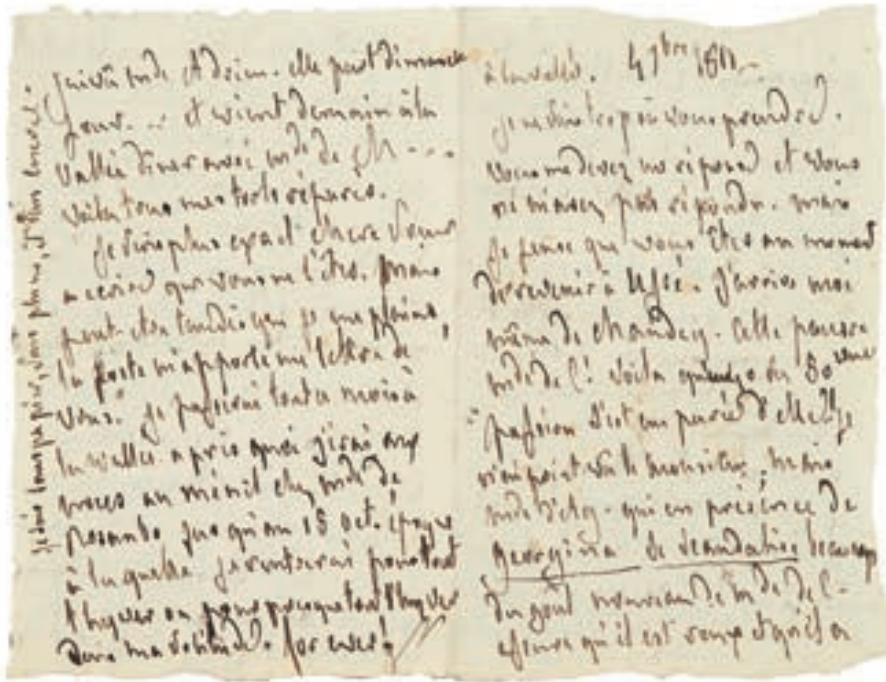 J'ai vu mde Adrien. elle part dimanche
pour... et vient demain à la
vallée diner avec mde de Ch...
voila tous mes torts réparés.
je suis plus exact chere soeur
a ecrire que vous ne l'êtes. mais
peut-etre tandis que je me plains,
la poste m'apporte une lettre de
vous. je passerai tout ce mois à
la vallée après quoi j'irai aux
noces au ménil chez mde de
Rosambo jusqu'au 15 oct. époque
à laquelle je rentrerai pour tout
l'hyver ou pour presque tout l'hyver
dans ma solitude. for ever!
je suis sans papier, sans plume, et sans encre.
à la vallée. 4 7bre 1811.
je ne sais trop où vous prendre.
vous me devez une réponse et vous
ne m'avez pas répondu. mais
je pense que vous êtes au moment
de revenir à Ussé. J'arrive moi
même de chamdey. Cette pauvre
mde de C! voila qu'une
passion s'est emparée d'elle!! je
n'ai point vu le monsieur, mais
mde qui en présence de
georgina se scandalise beaucoup
du gout nouveau de mde de C-
assure qu'il est roux et qu'il a